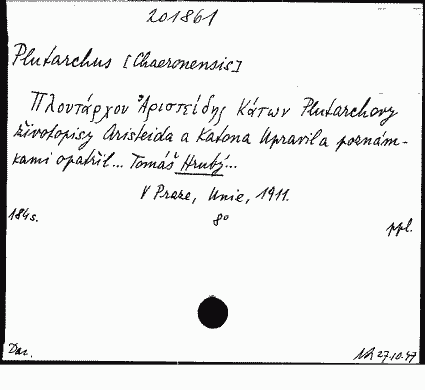 201861
Plutarchus [Chaeronensis]
Πλουτάρχου Ἀριστείδης Κάτων Plutarchovy
životopisy Aristeida a Katona Upravil a poznám-
kami opatřil... Tomáš Hrubý...
V Praze, Unie, 1911.
184s. 8° ppl.
Dar. 27.10.47